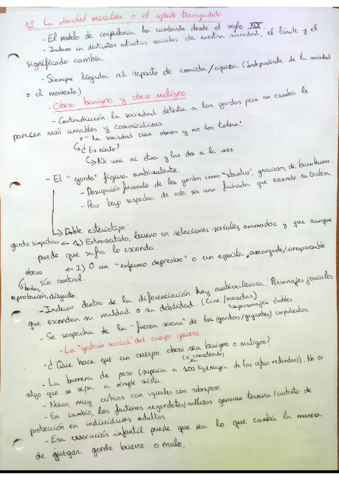 12 La obesidad masculina o el espíritu transfigurado
- El modelo de corpulencia ha cambiado desde el siglo XIX
- Incluso en distintos estratos sociales de una sociedad, el límite y el
significado cambia.
- Siempre ligado al reparto de comida/riqueza (Independiente de la sociedad
o el momento)
- Obeso benigno y obeso maligno.
- Contradicción la sociedad detesta a los gordos pero en cambio le
parecen más amables y comunicativos
↳ "la sociedad crea obesos y no los tolera"
↳ ¿Es cierto?
↳ Ni una ni otra y las dos a la vez
- El "gordo" figura ambivalente.
- Descripción frecuente de los gordos como "robustos", graciosos, de buen humor
- Pero bajo sospecha de que sea una fachada que esconde su tristeza
↳ Doble estereotipo
gordo simpático ← 1) Extrovertido, bueno en relaciones sociales animador y que aunque
puede que sufra lo esconda.
obeso ← 2) O un "enfermo depresivo" o un egoísta, irresponsable
↳ sin control.
reprobación, disgusto
- Incluso dentro de la diferenciación hay ambivalencia. Personajes joviales
que esconden su maldad o su debilidad. (Cine/novelas)
↳ personajes dobles
- Se sospecha de la "fuerza serena" de los (gordos/gigantes) corpulentos
- La "gestión social del cuerpo grueso.
- ¿Qué hace que un cuerpo obeso sea benigno o maligno?
- La barrera de peso (superior a 100 kg
algo que se sepa a simple vista.
- Niños muy críticos con iguales con sobrepeso
- En cambio, los factores regordetes/rollizos generan ternura/instinto de
protección en individuos adultos
- Esa evocación infantil puede que sea lo que cambie la manera
de juzgar gordo bueno o malo.